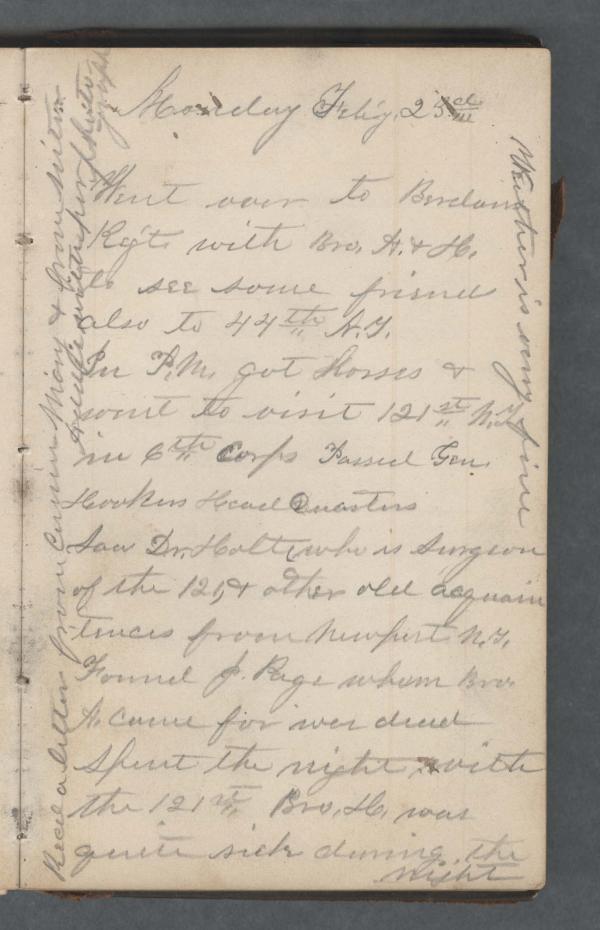 Monday Feb'y, 23rd
Went over to Berdans
Reg't. with Bro, A. & H.
to see some friends
also to 44th N.Y.
In P.M. got Horses &
went to visit 121st N.Y
in 6th Corps Passed Gen.
Hookers Head Quarters
Saw Dr. Holt, who is Surgeon
of the 121, & other old acquain
tences from Newport N.Y.
Found J. Page whom Bro.
A. came for was dead
Spent the night with
the 121st. Bro. H. was
quite sick during the
night
Weather is very fine
Recd a letter from Cousin Mary & from sister
Addie with her photo
graph